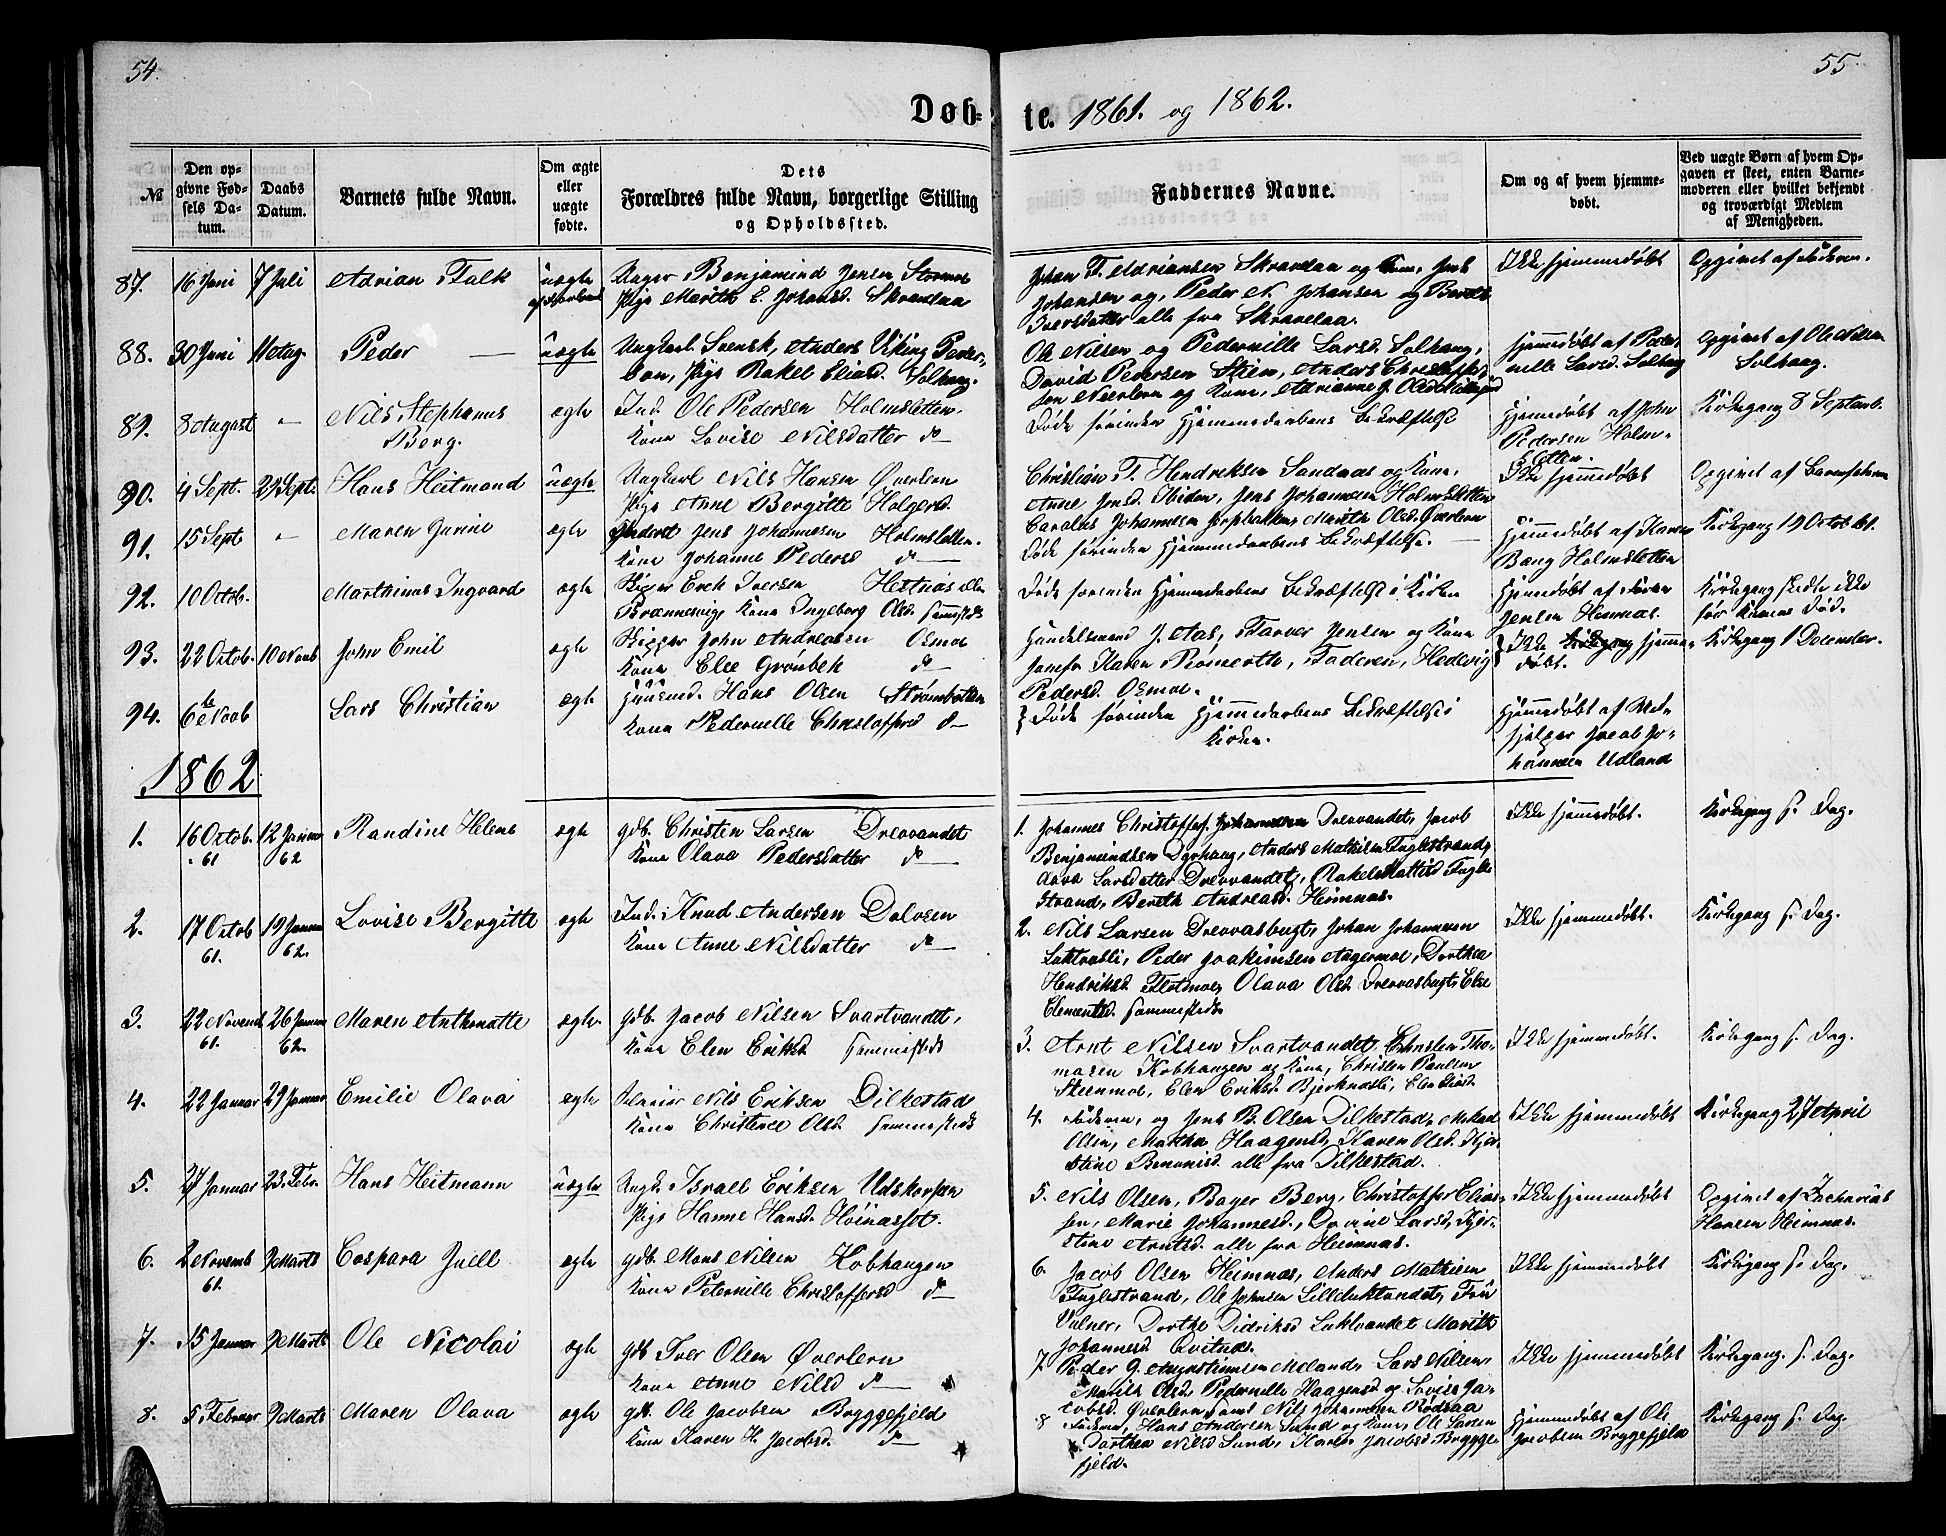 54.
55.
Døb-
te. 1861. og 1862.
№
Den opgivne Fødsels Datum.
Daabs Datum.
Barnets fulde Navn.
Om ægte eller uægte fødte.
Dets Forældres fulde Navn, borgerlige Stilling og Opholdssted.
Faddernes Navne.
Om og af hvem hjemmedøbt.
Ved uægte Børn af hvem Opgaven er skeet, enten Barnemoderen eller hvilket bekjendt og troværdigt Medlem af Menigheden.
87. 16 Juni 7 Juli Adrian Falk uægte
Ungkr. Benjamind Jensen
Pige Marith E. Johansd. Skravlaa
Johan F. Adriansen Skravlaa og Kone, Jens
Johansen og, Peder N. Johansen og Bereth
Iversdatter alle fra Skravlaa.
Ikke hjemmedøbt
Opgivet af Faderen.
88. 30 Juni 11 Aug. Peder — uægte
Ungkarl Svensk, Anders Viking Peder-
son, Pige Rakel Eliasd. Solhaug.
Ole Nilsen og Pedernille Larsd. Solhaug,
David Pedersen Stien, Anders Christoffer-
sen Neerlern og Kone, Adrianne J. Olsd.
hjemmedøbt af Peder-
nille Larsd. Solhaug
Opgivet af Ole Nilsen
Solhaug.
89. 8 August — Nils Stephanus
Berg.
ægte
Ind. Ole Pedersen Holmsletten.
Kone Lovise Nilsdatter do —
Døde forinden Hjemmedaabens Bekræftelse
Hjemmedøbt af John
Pedersen Holm-
sletten.
Kirkegang 8 Septemb.
90. 4 Sept. 29 Sept. Hans Heitmand uægte
Ungkarl Nils Hansen Øverlern
Pige Anne Bergitte Holgersd.
Christian F. Hendriksen Sandnæs og Kone,
Anne Jensd. Ibiden, Jens Johannesen Holmsletten
Carolus Johannesen, Marith Olsd. Øverlern
Ikke hjemmedøbt
Opgivet af Barnefaderen
91. 15 Sept — Maren Jarine ægte
Inderst Jens Johannesen Holmsletten.
Kone Johanne Pedersd do —
Døde forinden Hjemmedaabens Bekræftelse. —
Hjemmedøbt af Karen
Bang Holmsletten
Kirkegang 19 Octob. 61.
92. 10 Octob. Marthinus Ingvard ægte
Erik Iversen
Kone Ingeborg Olsd. sammesteds
Døde forinden Hjemmedaabens Bekræftelse i Kirken
Hjemmedøbt af
Jensen Hemnæs.
Kirkegang skedte ikke
før Konens Død.
93. 22 Octob. 10 Novb John Emil ægte
John Andreasen Osmoe
Kone Else Grønbek do —
Handelsmand J. Aas, Farver Jensen og Kone
Jomfr Karen Rømerth, Faderen, Hedevig
Pedersd. Osmoe.
Ikke hjemme-
døbt.
Kirkegang 1 December.
94. 6te Novb Lars Christian ægte
Huusmd. Hans Olsen Strømbotten
Kone Pedernille Christoffersd do —
Døde forinden Hjemmedaabens Bekræftelse i
Kirken.
Hjemmedøbt af Med-
hjelper Jacob Jo-
hannesen Udland
1862.
1. 16 Octob. 61 12 Januar 62 Randine Helene ægte
gdb. Christen Larsen Drevvandet
Kone Olava Pedersdatter do —
1. Johannes Christoffers. Drevvandet, Jacob
Benjamindsen Dyrhaug, Anders Mathisen Fuglestrand,
Larsdatter Drevvandet, Rakel Mattisd Fugle-
strand, Bereth Andreasd. Heimnæs.
Ikke hjemmedøbt.
Kirkegang s. Dag.
2. 17 Octob 61. 19 Januar 62. Lovise Bergitte ægte
Ind. Knud Andersen Dolvsen
Kone Anne Nilsdatter do —
2. Nils Larsen Drevvasbugt, Johan Johannesen
Luktvasli, Peder Joakimsen Angermoe, Dorthea
Hendriksd Flotmoe, Olava Olsd Drevvasbugt, Else
Clemetsd. sammesteds
Ikke hjemmedøbt.
Kirkegang s. Dag.
3. 22 Novemb 61. 26 Januar 62. Maren Anthonatte ægte.
gdb. Jacob Nilsen Svartvandet,
Kone Elen Eriksd sammesteds
3. Arnt Nilsen Svartvandet, Christen Tho-
masen Kobhaugen og Kone, Christen Paulsen
Steenmoe, Elen Eriksd. Bjerknæsli,
Ikke hjemmedøbt.
Kirkegang s. Dag.
4. 22 Januar 29 Januar Emilie Olava ægte
Nils Eriksen Dilkestad
Kone Christence Olsd. sammesteds
4. Faderen, og Jens B. Olsen Dilkestad,
Olsen, Martha Haagensd, Karen Olsd. Kjer-
stine Benonisd. alle fra Dilkestad.
Ikke hjemmedøbt
Kirkegang 27 April
5. 27 Januar 23. Febr. Hans Heitmann uægte
Ungk. Israel Eriksen Udskorpen
Pige Hanne Hansd. Høinæsset.
5. Nils Olsen, Bager Berg, Christoffer Elias-
sen, Marie Johannesd., Davine Larsd., Kjer-
stine Arntsd. alle fra Heimnæs.
Ikke hjemmedøbt
Opgivet af Zacharias
Hansen Heimnæs.
6. 2 Novemb 61. 9 Marts Caspara Juell ægte
gdb. Mons Nilsen Kobhaugen
Kone Peternille Christoffersd do —
6. Jacob Olsen Heimnæs, Anders Mathisen
Fuglestrand, Ole Johnsen Lilleluktvandet, Fru
Vulner, Dorthe Didriksd Luktvandet, Marith
Johannesd
Ikke hjemmedøbt
Kirkegang s. Dag.
7. 15 Januar 9 Marts Ole Nicolai ægte
gdb Iver Olsen Øverlern
Kone Anne Nilsd do —
7 Peder J. Augustinusen Meland, Lars Nilsen,
Marith Olsd. Pedernille Haagensd og Lovise Ja-
cobsd. Øverlern samt Nils Johannesen Rødsaa
Ikke hjemmedøbt
Kirkegang. s. Dag.
8. 5. Februar 9 Marts Maren Olava ægte
gdb. Ole Jacobsen Bryggefjeld
Kone Karen H. Jacobsd. do —
8 Faderen, Hans Andersen Sund og Kone, Ole Larsen
Dorthea Nilsd Sund, Karen Jacobsd. Brygge-
fjeld.
Hjemmedøbt af Ole
Jacobsen Bryggefjeld
Kirkegang s. Dag.